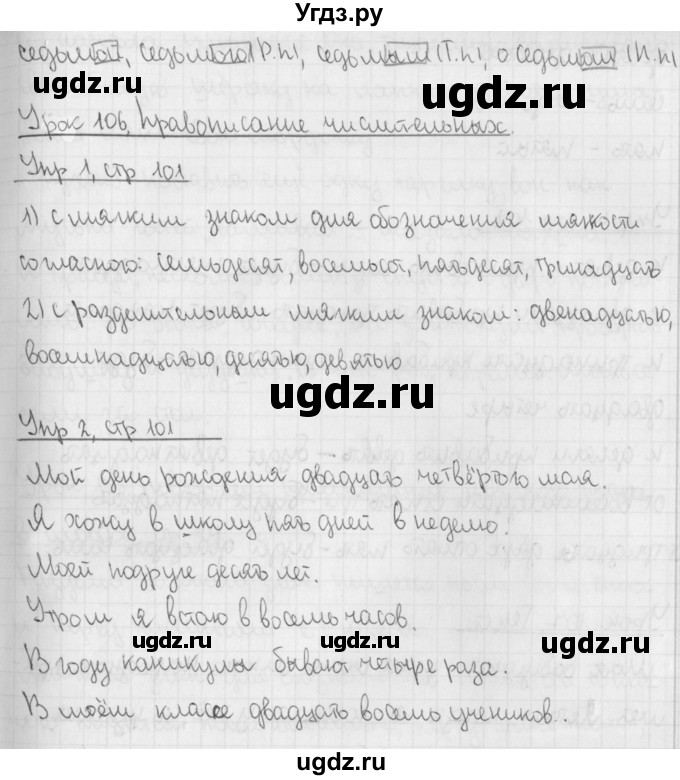 Угдз.ру
седьмой, седьмого (Р.п), седьмым (Т.п), о седьмом (П.п)
ugdz.ru ugdz.ru
Урок 106, правописание числительных.
Упр 1, стр 101
1) с мягким знаком для обозначения мягкости
согласного: семьдесят, восемьсот, пятьдесят, тринадцать
ugdz.ru ugdz.ru
2) с разделительным мягким знаком: двенадцатью,
восемнадцатью, десятью, девятью
ugdz.ru
Упр 2, стр 101
Мой день рождения двадцать четвёртого мая.
Я хожу в школу пять дней в неделю.
Моей подруге десять лет.
Утром я встаю в восемь часов.
ugdz.ru ugdz.ru
В году каникулы бывают четыре раза.
В моём классе двадцать восемь учеников.
ugdz.ru ugdz.ru
Угдз.ру